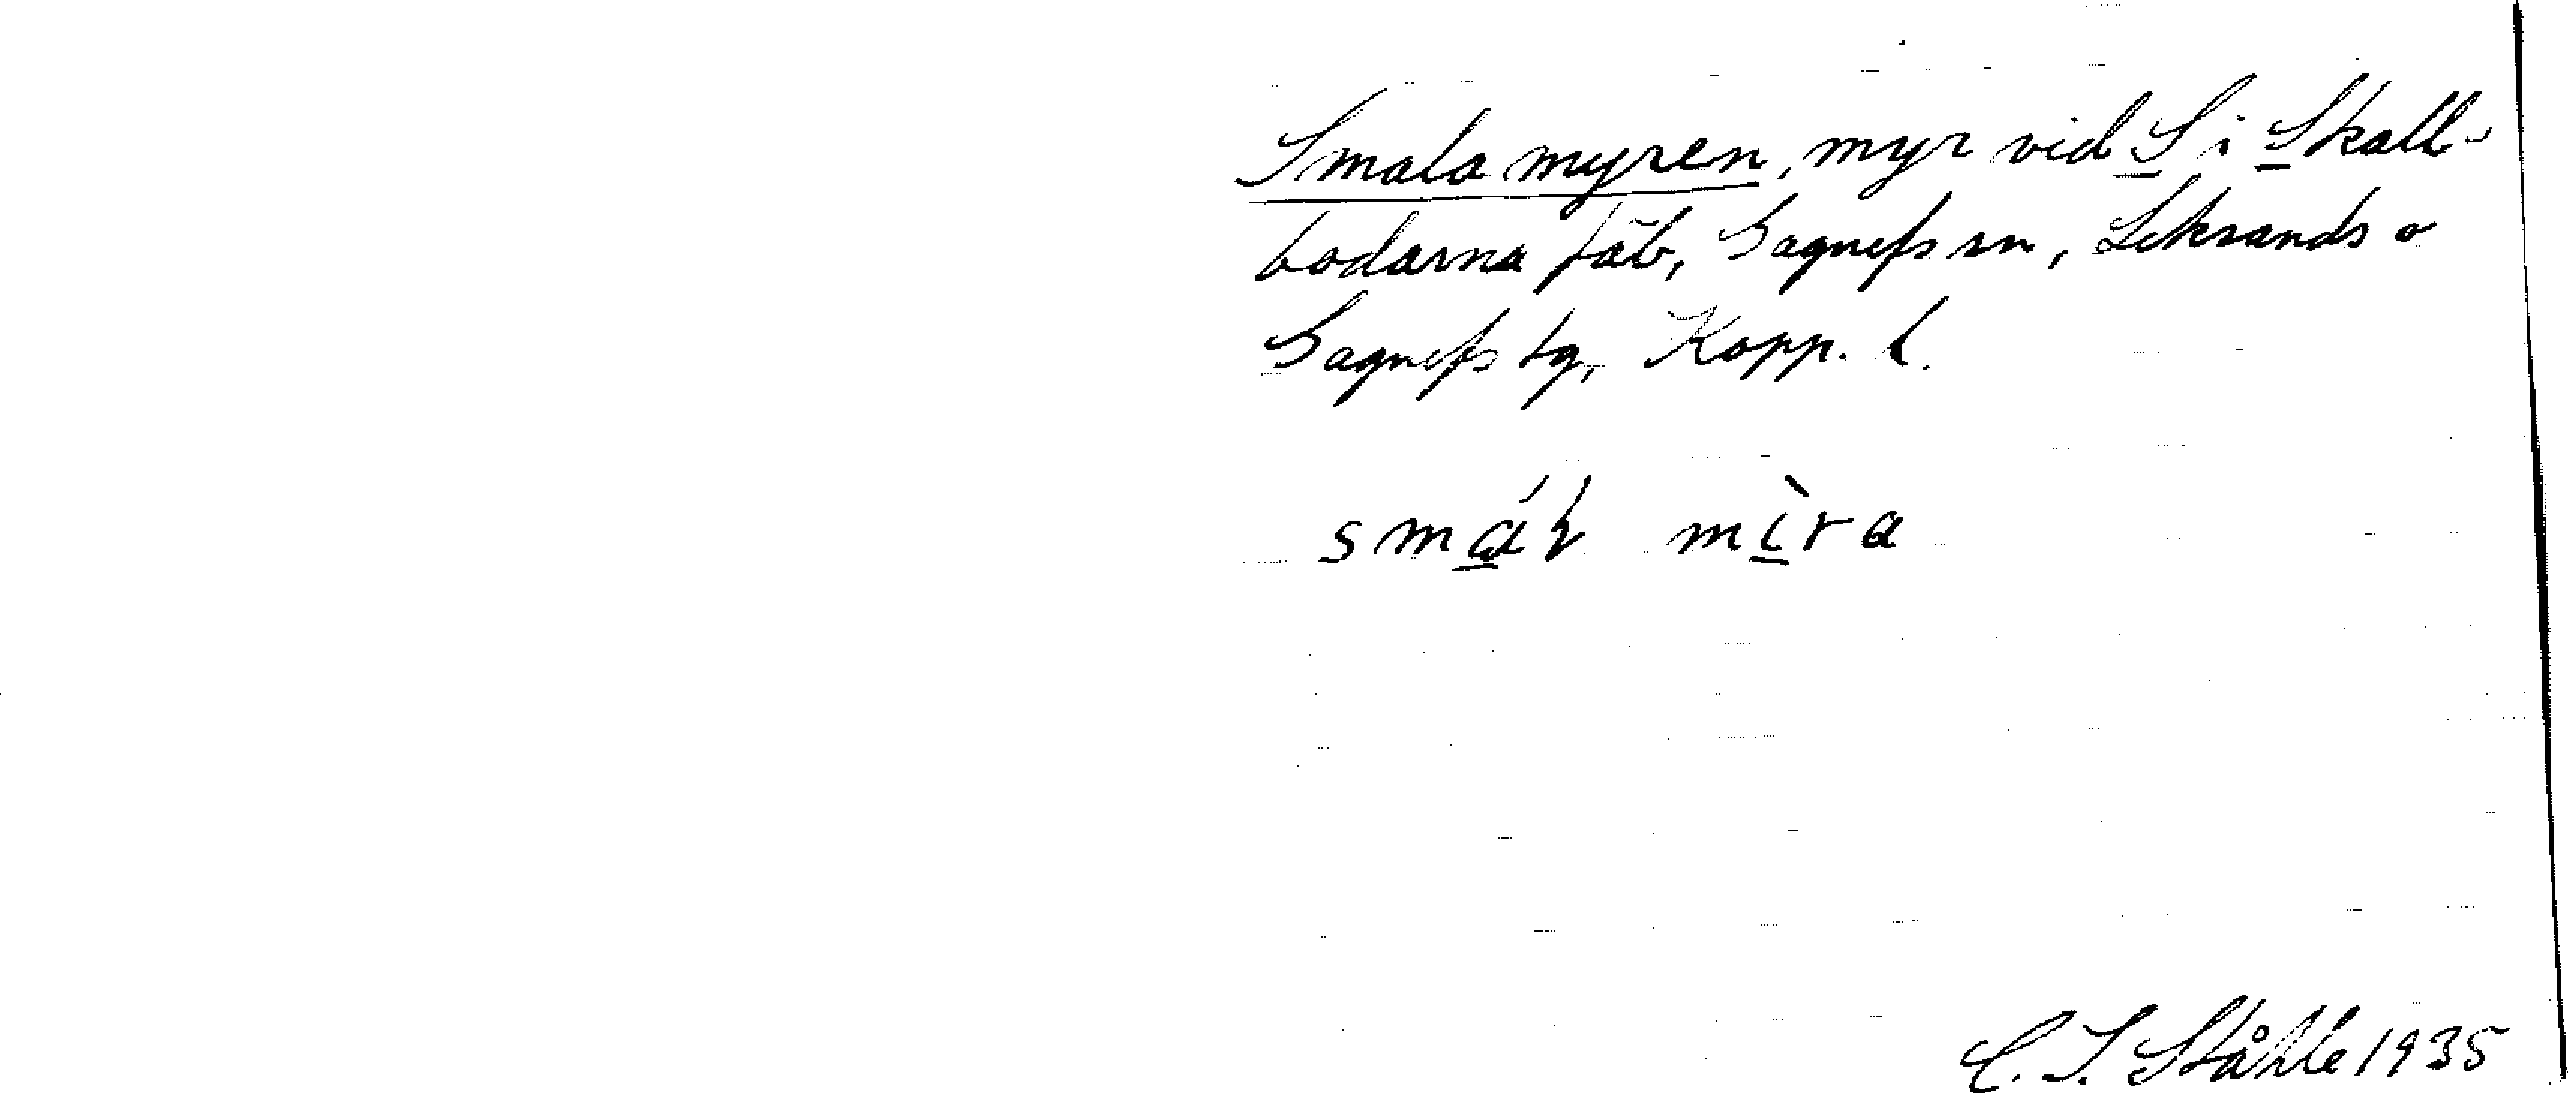 Smala myren, myr vid S i Skall-
bodarna fäb, Gagnefs sn, Leksands o
Gagnefs tg, Kopp. l.
smál mìra
C. I. Ståhle 1935